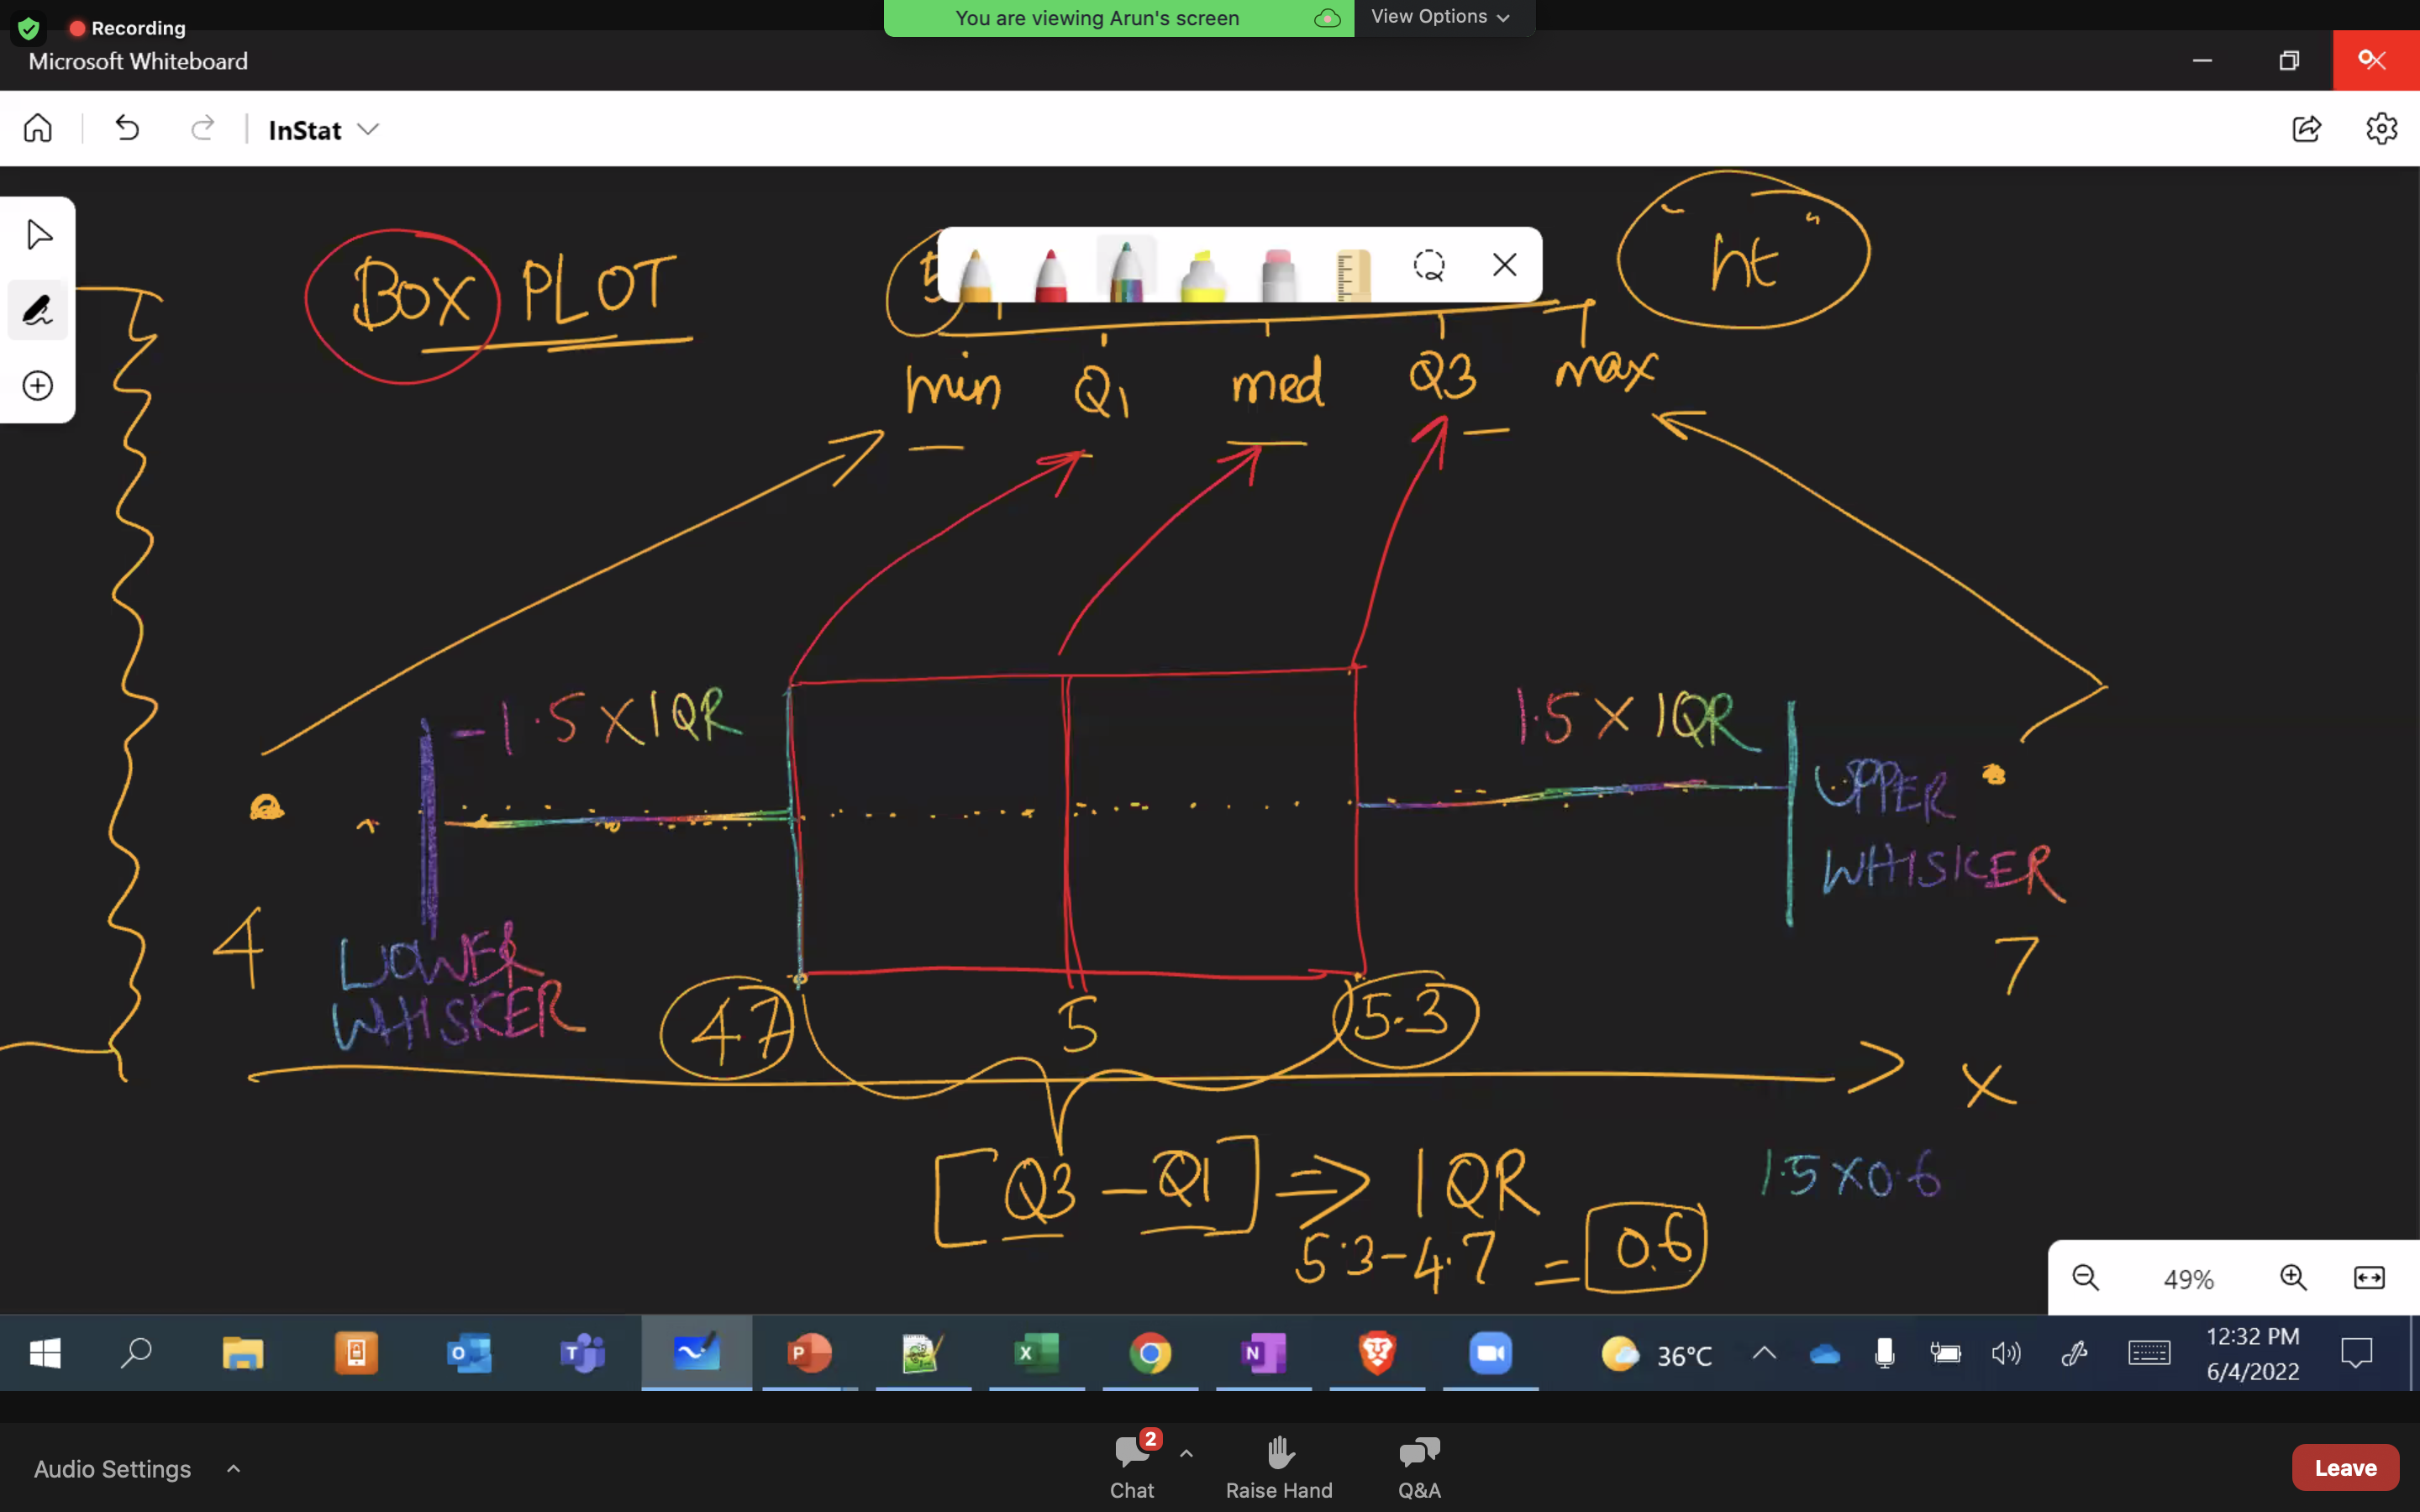 Recording
You are viewing Arun's screen
View Options
Microsoft Whiteboard
InStat
BOX PLOT
5
"ht"
min Q1 med Q3 max
-1.5 X IQR
1.5 X IQR
UPPER
WHISKER
4
LOWER
WHISKER
4.7
5
5.3
7
x
[Q3 - Q1] => IQR
1.5 X 0.6
5.3 - 4.7 = 0.6
49%
36°C
12:32 PM
6/4/2022
Audio Settings
2
Chat
Raise Hand
Q&A
Leave